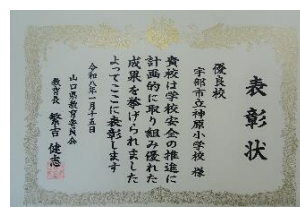 表彰状
優良校
宇部市立神原小学校 様
貴校は学校安全の推進に
計画的に取り組み優れた
成果を挙げられました
よってここに表彰します
令和八年一月十五日
山口県教育委員会
教育長 繁吉 健志